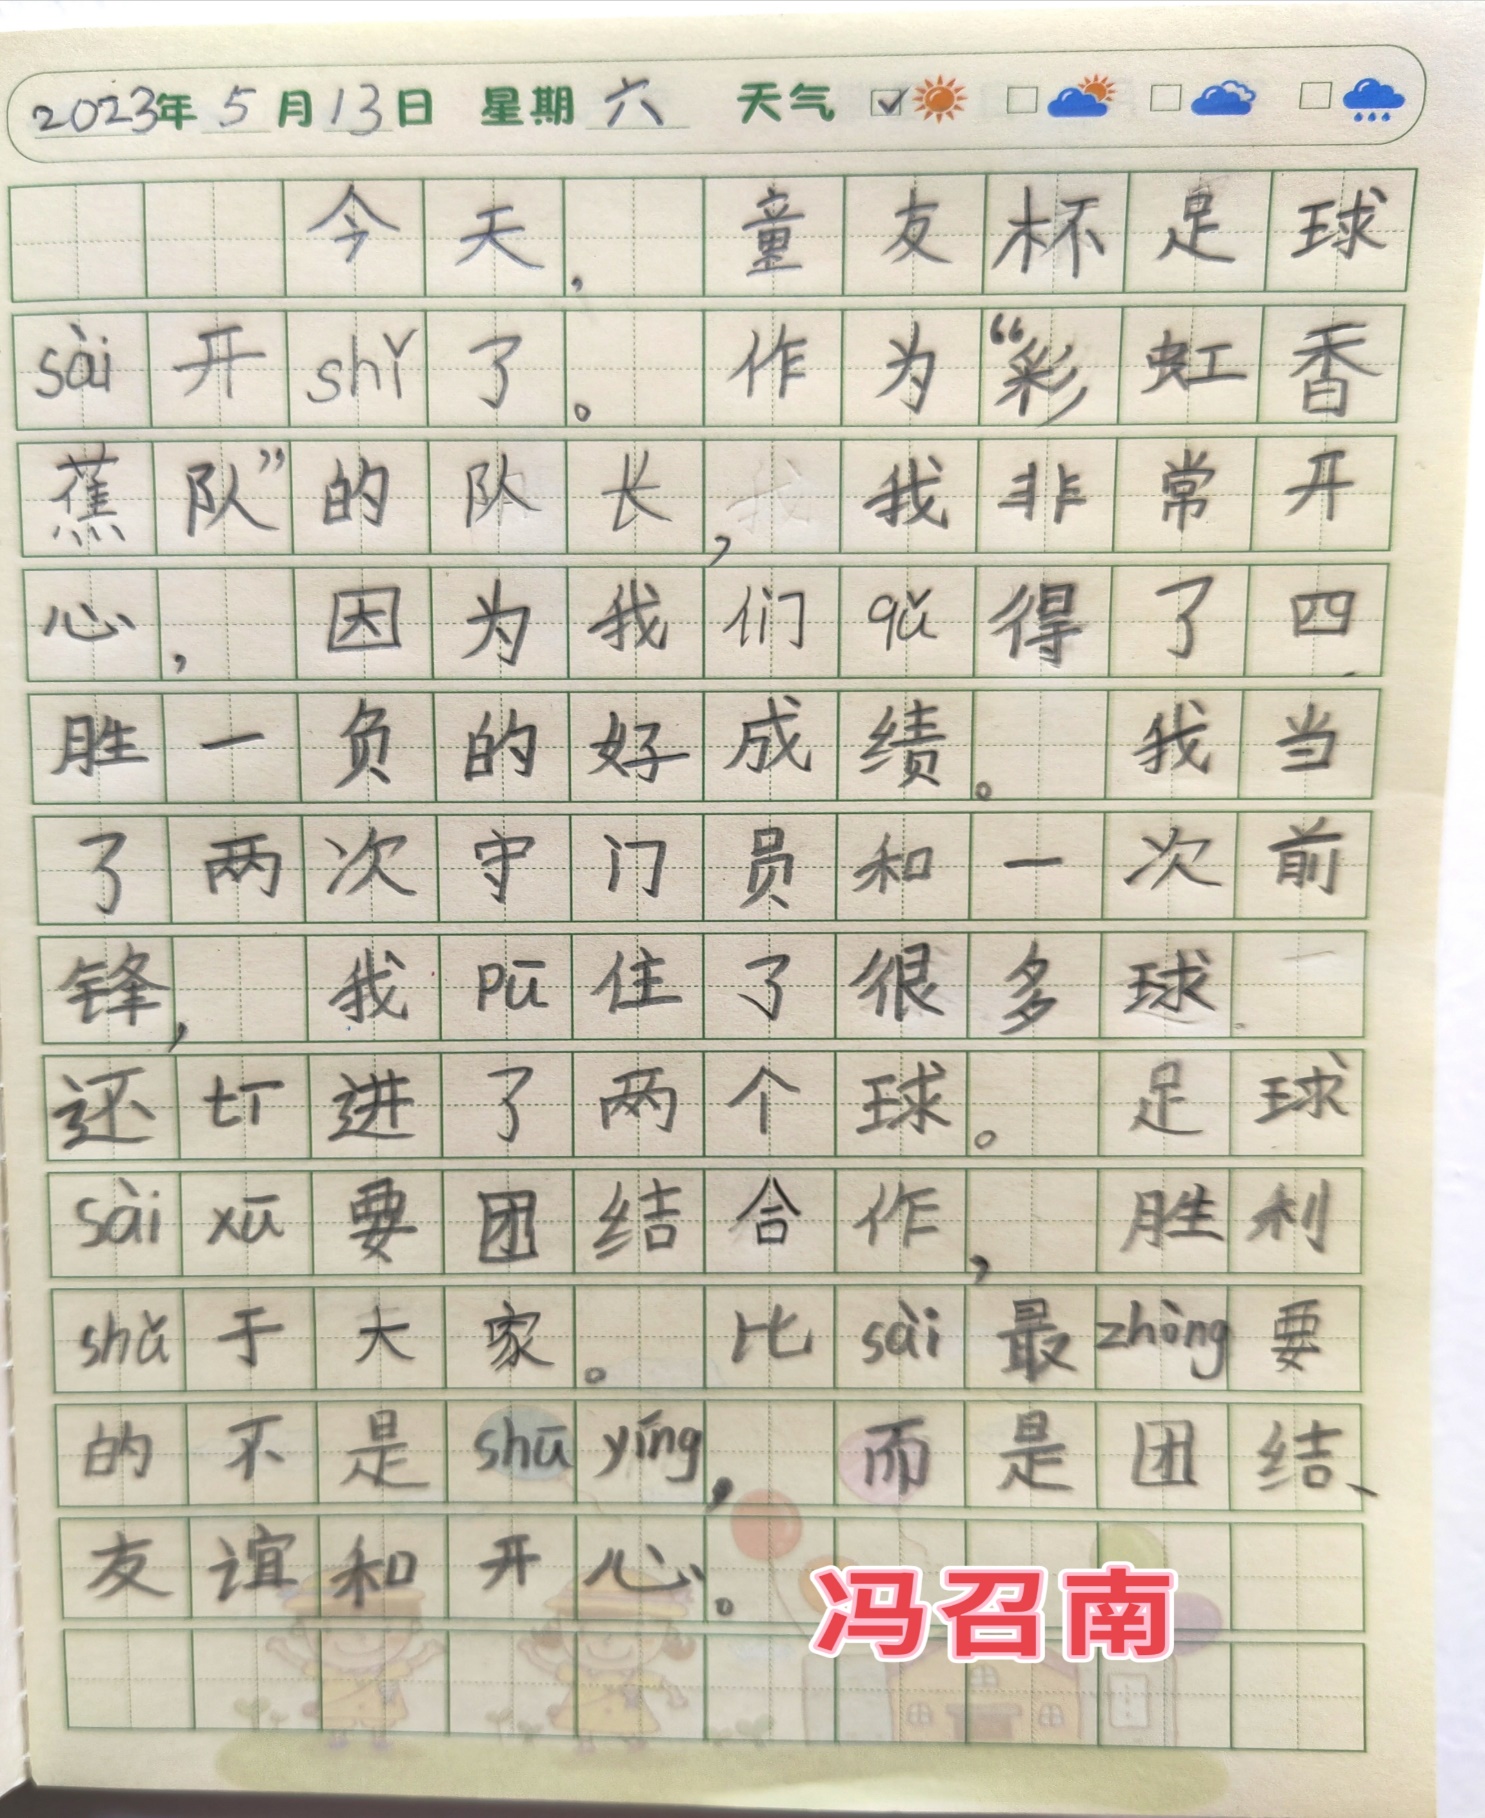 2023年5月13日 星期六 天气
今天，童友杯足球
sài开shǐ了。作为“彩虹香
蕉队”的队长，我非常开
心，因为我们qǔ得了四
胜一负的好成绩。我当
了两次守门员和一次前
锋，我pū住了很多球
还tī进了两个球。足球
sài xū要团结合作，胜利
shǔ于大家。比sài最zhòng要
的不是shū yíng，而是团结、
友谊和开心。
冯召南